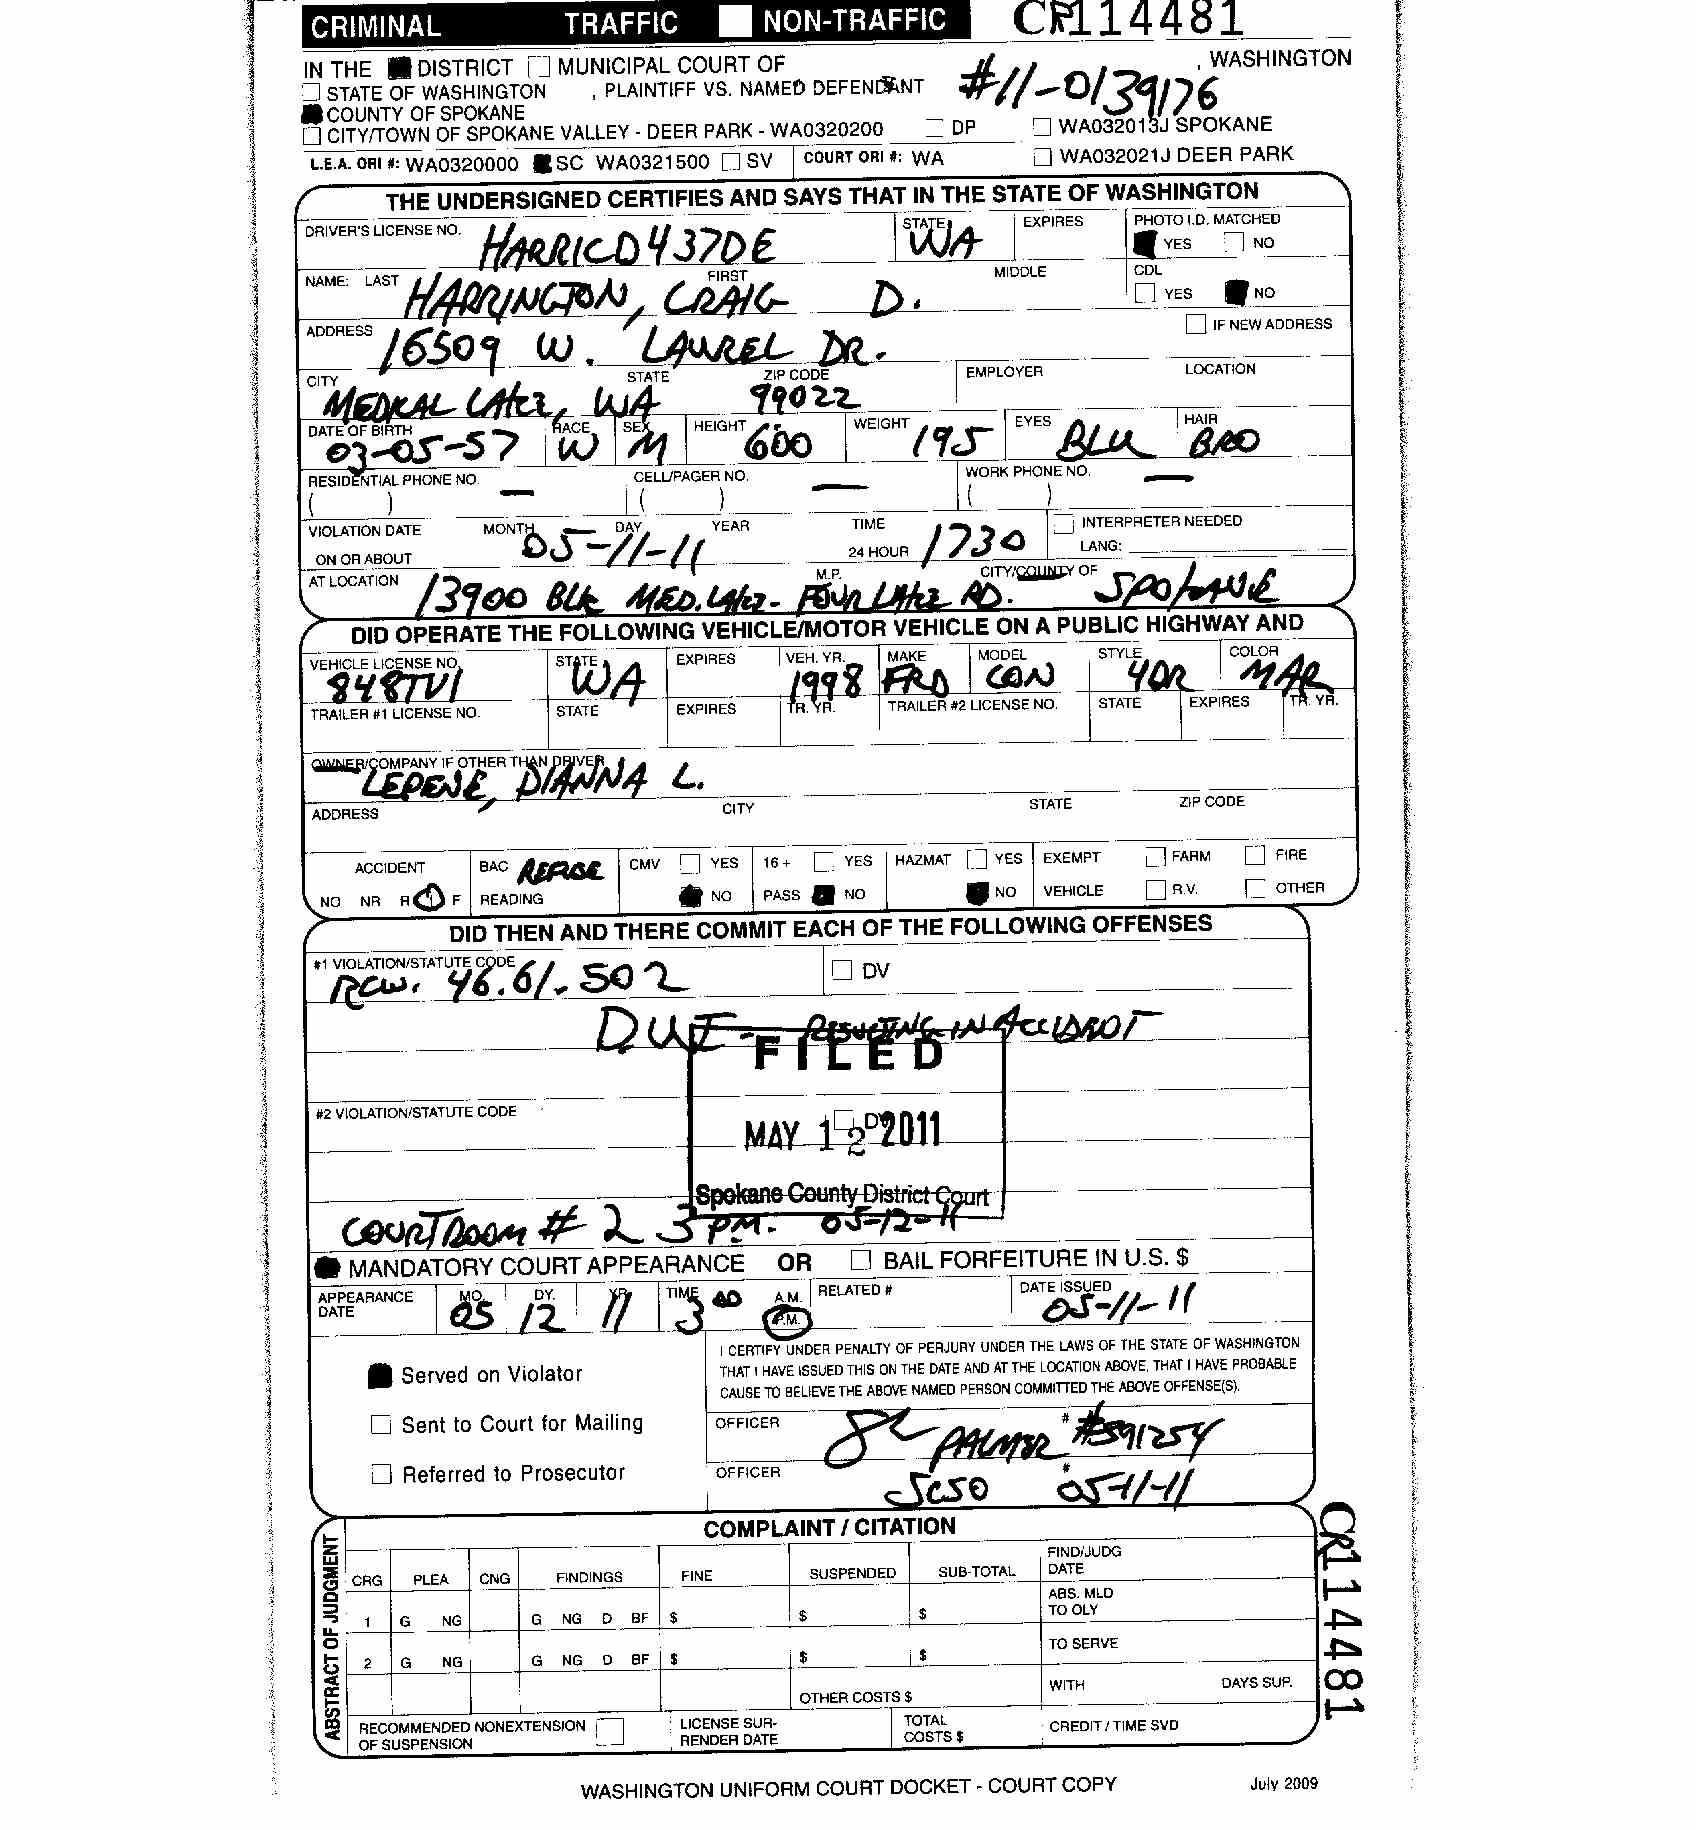 CRIMINAL TRAFFIC NON-TRAFFIC CR114481
IN THE DISTRICT MUNICIPAL COURT OF , WASHINGTON
STATE OF WASHINGTON , PLAINTIFF VS. NAMED DEFENDANT #11-0139176
COUNTY OF SPOKANE
CITY/TOWN OF SPOKANE VALLEY - DEER PARK - WA0320200 DP WA032013J SPOKANE
L.E.A. ORI #: WA0320000 SC WA0321500 SV COURT ORI #: WA WA032021J DEER PARK
THE UNDERSIGNED CERTIFIES AND SAYS THAT IN THE STATE OF WASHINGTON
DRIVER'S LICENSE NO. STATE EXPIRES PHOTO I.D. MATCHED
HARRICD437DE WA YES NO
NAME: LAST FIRST MIDDLE CDL
HARRINGTON, CRAIG D. YES NO
ADDRESS IF NEW ADDRESS
16509 W. LAUREL DR.
CITY STATE ZIP CODE EMPLOYER LOCATION
MEDICAL LAKE, WA 99022
DATE OF BIRTH RACE SEX HEIGHT WEIGHT EYES HAIR
03-05-57 W M 600 195 BLU BRO
RESIDENTIAL PHONE NO. CELL/PAGER NO. WORK PHONE NO.
( ) — ( ) — ( ) —
VIOLATION DATE MONTH DAY YEAR TIME INTERPRETER NEEDED
ON OR ABOUT 05-11-11 24 HOUR 1730 LANG:
AT LOCATION M.P. CITY/COUNTY OF
13900 BLK MED. LAKE - FOUR LAKE RD. SPOKANE
DID OPERATE THE FOLLOWING VEHICLE/MOTOR VEHICLE ON A PUBLIC HIGHWAY AND
VEHICLE LICENSE NO. STATE EXPIRES VEH. YR. MAKE MODEL STYLE COLOR
848TVI WA 1998 FRD CON 4DR MAR
TRAILER #1 LICENSE NO. STATE EXPIRES TR. YR. TRAILER #2 LICENSE NO. STATE EXPIRES TR. YR.
OWNER/COMPANY IF OTHER THAN DRIVER
LEPENSE, DIANNA L.
ADDRESS CITY STATE ZIP CODE
ACCIDENT BAC REFUSE CMV YES 16+ YES HAZMAT YES EXEMPT FARM FIRE
NO NR R I F READING NO PASS NO NO VEHICLE R.V. OTHER
DID THEN AND THERE COMMIT EACH OF THE FOLLOWING OFFENSES
#1 VIOLATION/STATUTE CODE DV
RCW. 46.61.502
DUI - RESULTING IN ACCIDENT
FILED
#2 VIOLATION/STATUTE CODE DV
MAY 12 2011
Spokane County District Court
COURTROOM # 2 3 PM. 05-12-11
MANDATORY COURT APPEARANCE OR BAIL FORFEITURE IN U.S. $
APPEARANCE DATE MO. DY. YR. TIME A.M. P.M. RELATED # DATE ISSUED
05 12 11 3 00 05-11-11
I CERTIFY UNDER PENALTY OF PERJURY UNDER THE LAWS OF THE STATE OF WASHINGTON
THAT I HAVE ISSUED THIS ON THE DATE AND AT THE LOCATION ABOVE, THAT I HAVE PROBABLE
CAUSE TO BELIEVE THE ABOVE NAMED PERSON COMMITTED THE ABOVE OFFENSE(S).
Served on Violator
Sent to Court for Mailing
Referred to Prosecutor
OFFICER PALMER # #591254
OFFICER SCSO # 05-11-11
COMPLAINT / CITATION
ABSTRACT OF JUDGMENT
CRG PLEA CNG FINDINGS FINE SUSPENDED SUB-TOTAL FIND/JUDG DATE
1 G NG G NG D BF $ $ $ ABS. MLD TO OLY
2 G NG G NG D BF $ $ $ TO SERVE
OTHER COSTS $ WITH DAYS SUP.
RECOMMENDED NONEXTENSION OF SUSPENSION LICENSE SURRENDER DATE TOTAL COSTS $ CREDIT / TIME SVD
CR114481
WASHINGTON UNIFORM COURT DOCKET - COURT COPY July 2009